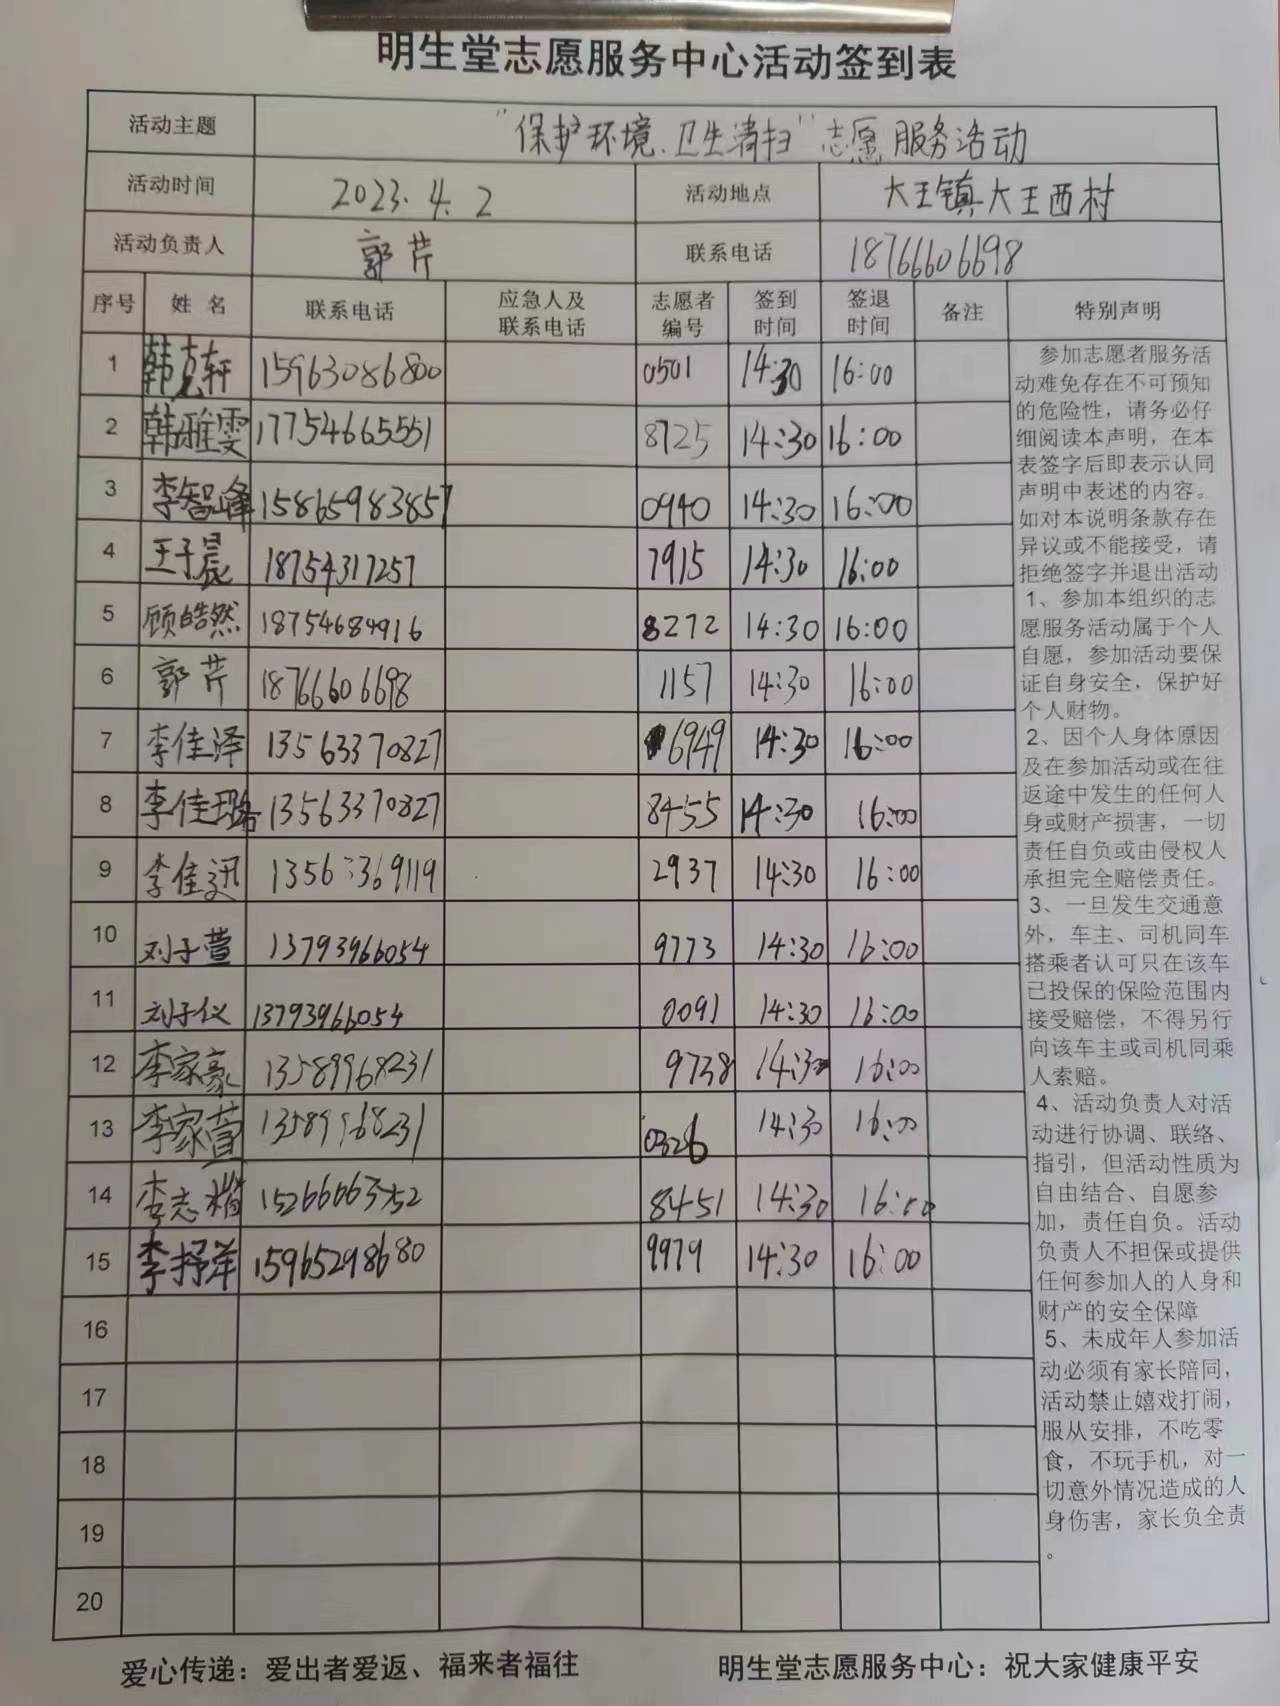 明生堂志愿服务中心活动签到表
活动主题 "保护环境、卫生清扫"志愿服务活动
活动时间 2023.4.2 活动地点 大王镇大王西村
活动负责人 郭芹 联系电话 18766606698
序号 姓名 联系电话 应急人及联系电话 志愿者编号 签到时间 签退时间 备注 特别声明
1 韩克轩 15963086800 0501 14:30 16:00
2 韩雅雯 17754665551 8725 14:30 16:00
3 李智峰 15865983857 0940 14:30 16:00
4 王子晨 18754317257 7915 14:30 16:00
5 顾皓然 18754684916 8272 14:30 16:00
6 郭芹 18766606698 1157 14:30 16:00
7 李佳泽 13563370827 6949 14:30 16:00
8 李佳璐 13563370827 8455 14:30 16:00
9 李佳 2937 14:30 16:00
10 刘子萱 13793966054 9773 14:30 16:00
11 刘子仪 13793966054 0091 14:30 16:00
12 李家豪 13589968231 9738 14:30 16:00
13 李家萱 13589968231 0326 14:30 16:00
14 李志 8451 14:30 16:00
15 李抒洋 15965298680 9979 14:30 16:00
16
17
18
19
20
参加志愿者服务活
动难免存在不可预知
的危险性，请务必仔
细阅读本声明，在本
表签字后即表示认同
声明中表述的内容。
如对本说明条款存在
异议或不能接受，请
拒绝签字并退出活动
1、参加本组织的志
愿服务活动属于个人
自愿，参加活动要保
证自身安全，保护好
个人财物。
2、因个人身体原因
及在参加活动或在往
返途中发生的任何人
身或财产损害，一切
责任自负或由侵权人
承担完全赔偿责任。
3、一旦发生交通意
外，车主、司机同车
搭乘者认可只在该车
已投保的保险范围内
接受赔偿，不得另行
向该车主或司机同乘
人索赔。
4、活动负责人对活
动进行协调、联络、
指引，但活动性质为
自由结合、自愿参
加，责任自负。活动
负责人不担保或提供
任何参加人的人身和
财产的安全保障
5、未成年人参加活
动必须有家长陪同，
活动禁止嬉戏打闹，
服从安排，不吃零
食，不玩手机，对一
切意外情况造成的人
身伤害，家长负全责
。
爱心传递：爱出者爱返、福来者福往 明生堂志愿服务中心：祝大家健康平安